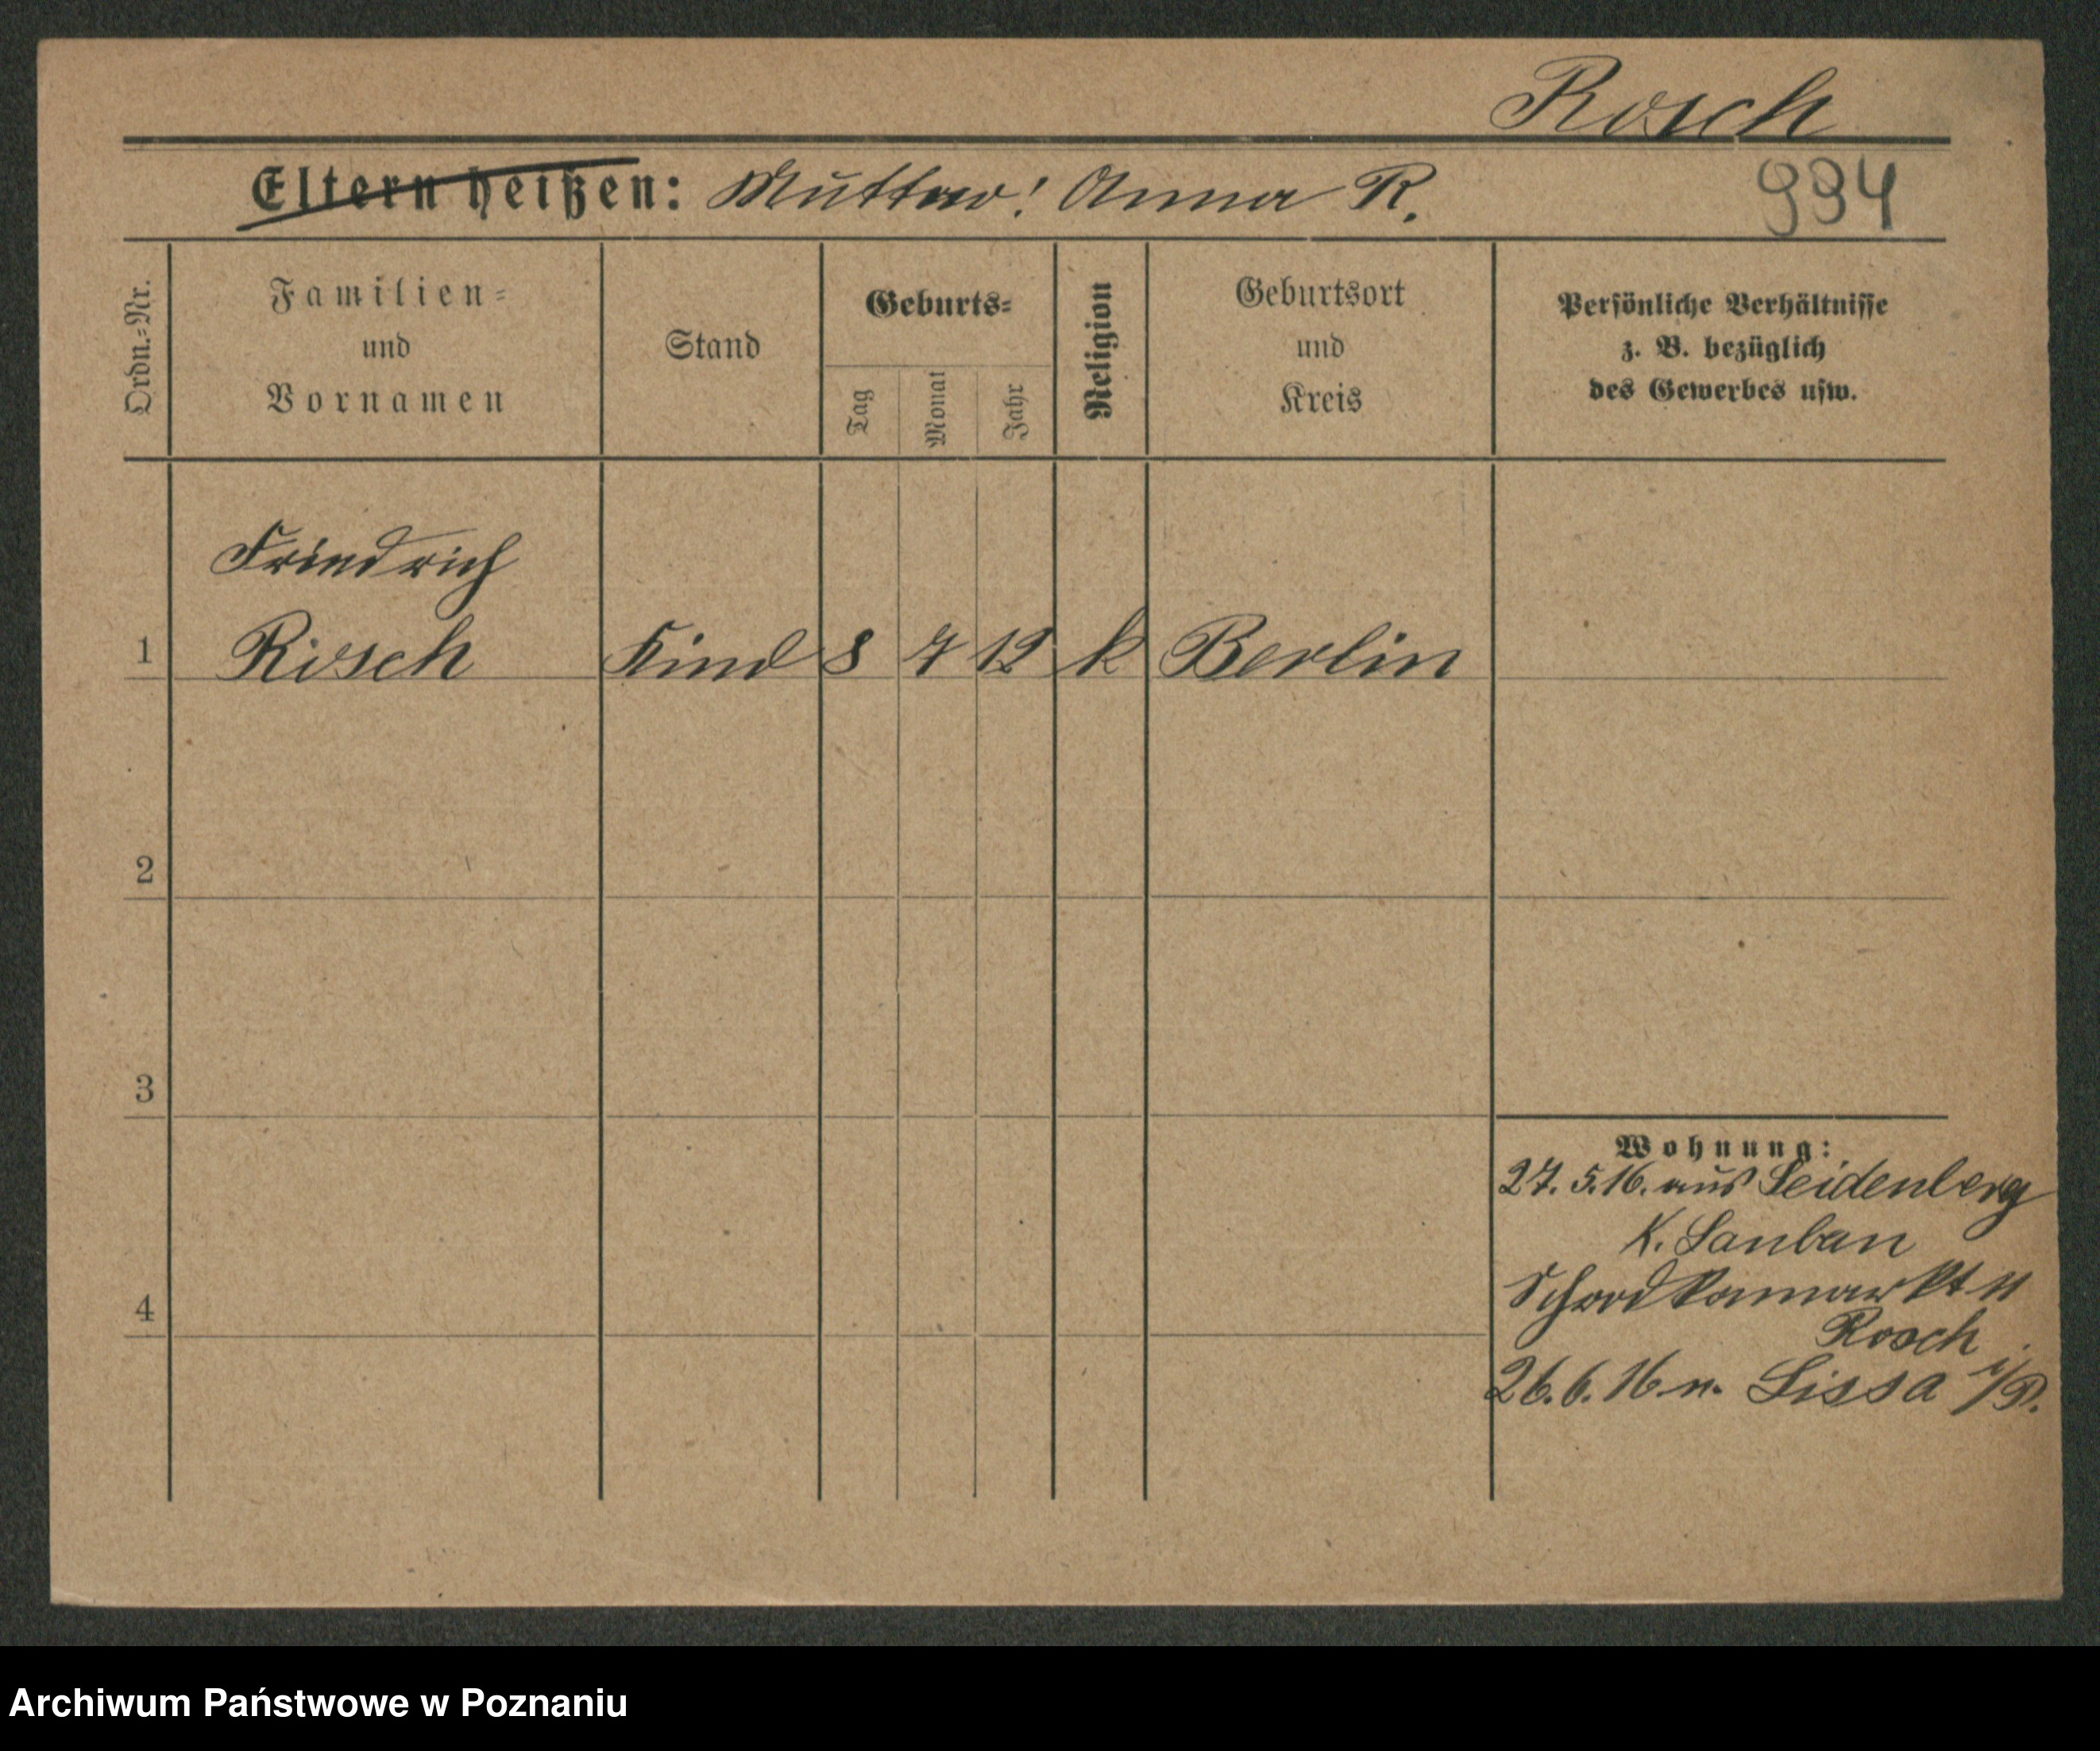 Rosch
Eltern heißen: Mutter! Anna R.
994
Ordn.=Nr.
Familien=
und
Vornamen
Stand
Geburts=
Tag
Monat
Jahr
Religion
Geburtsort
und
Kreis
Persönliche Verhältnisse
z. B. bezüglich
des Gewerbes usw.
Friedrich
1 Rosch Kind 8 7 12 k Berlin
2
3
4
Wohnung:
27. 5. 16. aus Seidenberg
K. Lauban
Rosch
26. 6. 16 n. Lissa i/P.
Archiwum Państwowe w Poznaniu